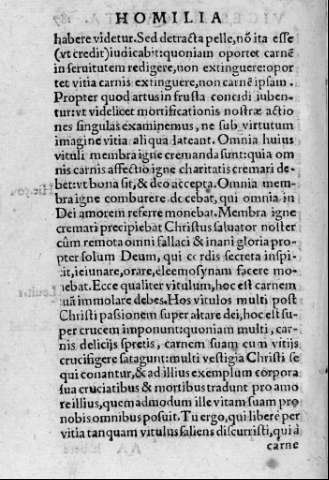 HOMILIA
habere videtur. Sed detracta pelle, nō ita esse
(vt credit) iudicabit: quoniam oportet carnē
in seruitutem redigere, non extinguere: opor
tet vitia carnis extinguere, non carnē ipsam.
Propter quod artus in frusta concidi iuben-
tur: vt videlicet mortificationis nostræ actio
nes singulas examinemus, ne sub virtutum
imagine vitia aliqua lateant. Omnia huius
vituli membra igne cremanda sunt: quia om
nis carnis affectio igne charitatis cremari de-
bet: vt bona sit, & deo accepta. Omnia mem-
bra igne comburere docebat, qui omnia in
Dei amorem referre monebat. Membra igne
cremari precipiebat Christus saluator noster
cùm remota omni fallaci & inani gloria pro-
pter solum Deum, qui cordis secreta inspi-
cit, ieiunare, orare, eleemosynam facere mo-
nebat. Ecce qualiter vitulum, hoc est carnem
tuā immolare debes. Hos vitulos multi post
Christi passionem super altare dei, hoc est su-
per crucem imponunt: quoniam multi, car-
nis delicijs spretis, carnem suam cum vitijs
crucifigere satagunt: multi vestigia Christi se
qui conantur, & ad illius exemplum corpora
sua cruciatibus & mortibus tradunt pro amo
re illius, quemadmodum ille vitam suam pro
nobis omnibus posuit. Tu ergo, qui liberè per
vitia tanquam vitulus saliens discurristi, qui à
carne